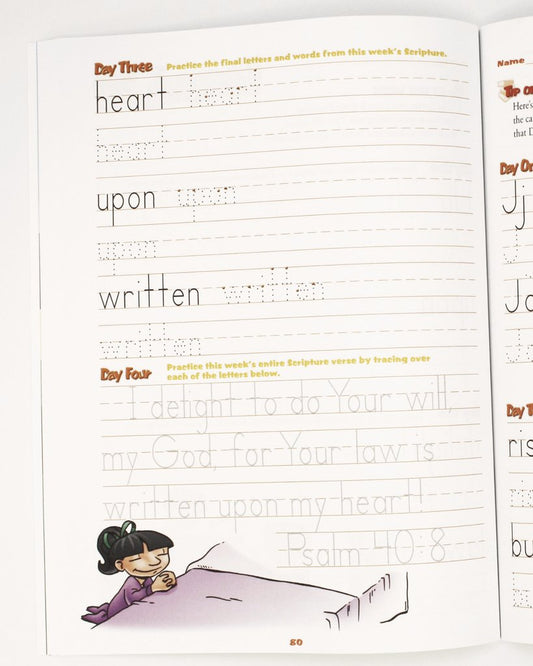 Day Three Practice the final letters and words from this week's Scripture.
heart heart
heart
upon upon
upon
written written
written
Day Four Practice this week's entire Scripture verse by tracing over
each of the letters below.
I delight to do Your will,
my God, for Your law is
written upon my heart!
Psalm 40:8
80
Name
Here's
the ca
that D
Jj
j